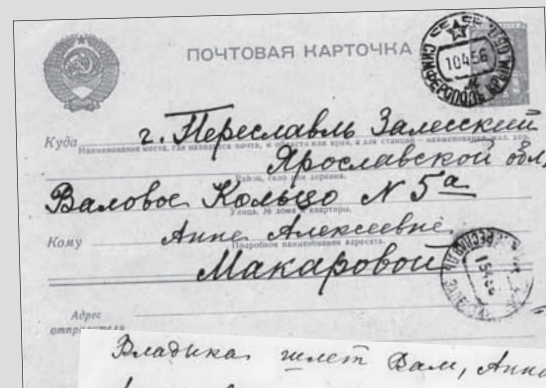 ПОЧТОВАЯ КАРТОЧКА
СИМФЕРОПОЛЬ
10456
Куда г. Переславль Залесский
Наименование места, где находится почта, и области или края, а для станции – наименование жел. дор.
Ярославской обл,
Район, село или деревня.
Валовое Кольцо N 5а
Улица, № дома и квартиры.
Кому Анне Алексеевне
Подробное наименование адресата.
Макаровой
Адрес
отправителя
Владыка шлет Вам, Анна